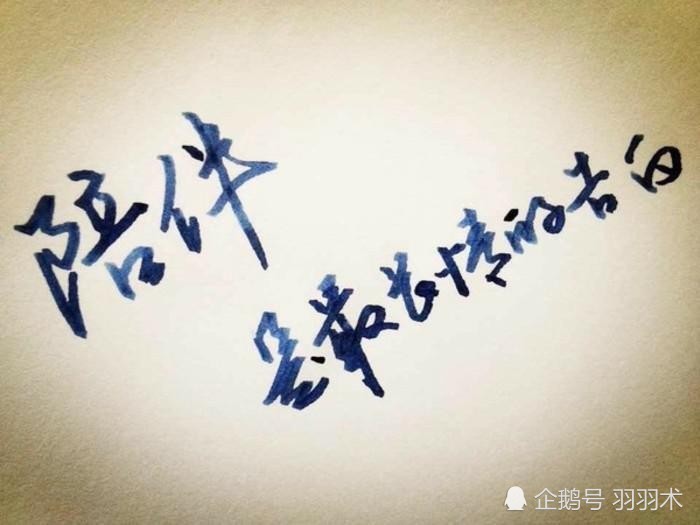 陪伴
是最长情的告白
企鹅号 羽羽术